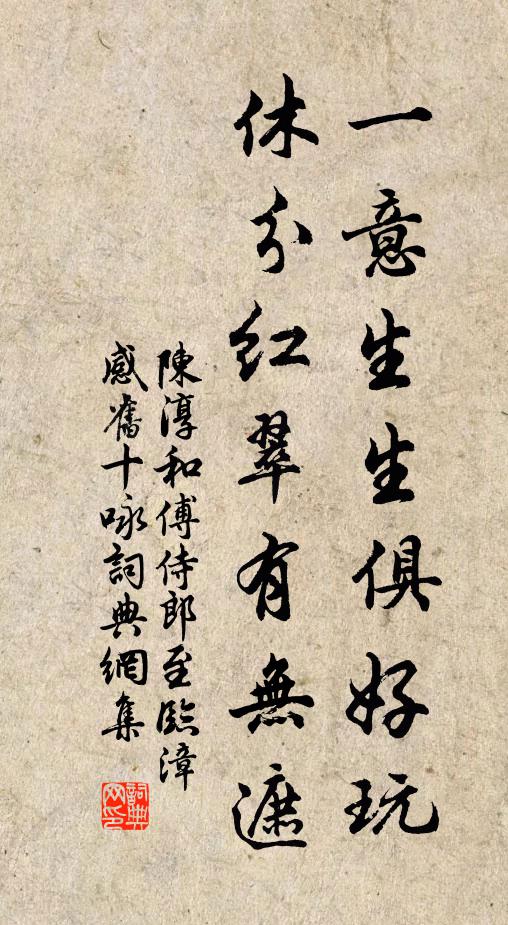 一意生生俱好玩
休分红翠有無遮
陳淳和傅侍郎至臨漳
感舊十咏詞典網集
詞典网印